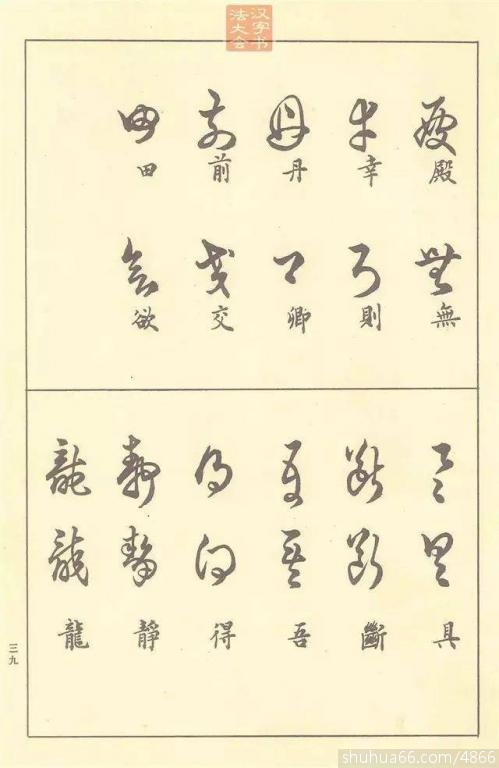 汉字书
法大会
殿 幸 丹 前 田
無 則 卿 交 欲
具 斷 吾 得 靜 龍
三九
shuhua66.com/4866